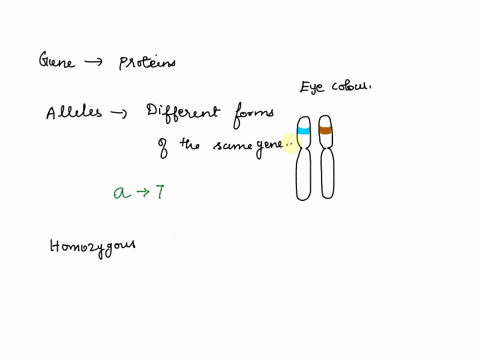 Gene → Proteins
Eye colour.
Alleles → Different forms
of the same gene..
a → 7
Homozygous